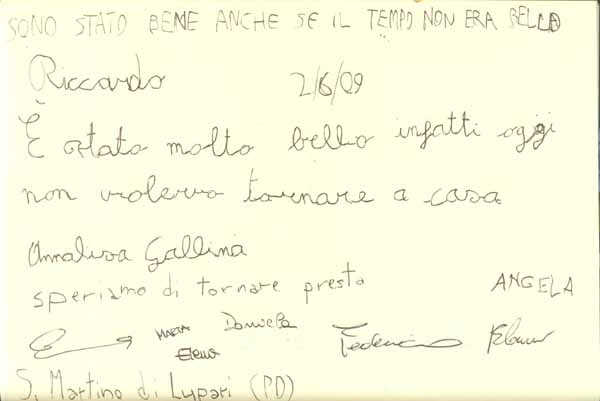 SONO STATO BENE ANCHE SE IL TEMPO NON ERA BELLO
Riccardo 2/6/09
È stato molto bello infatti oggi
non volevo tornare a casa
Annalisa Gallina
speriamo di tornare presto ANGELA
MARTA Daniela
Elena Federico
S. Martino di Lupari (PD)